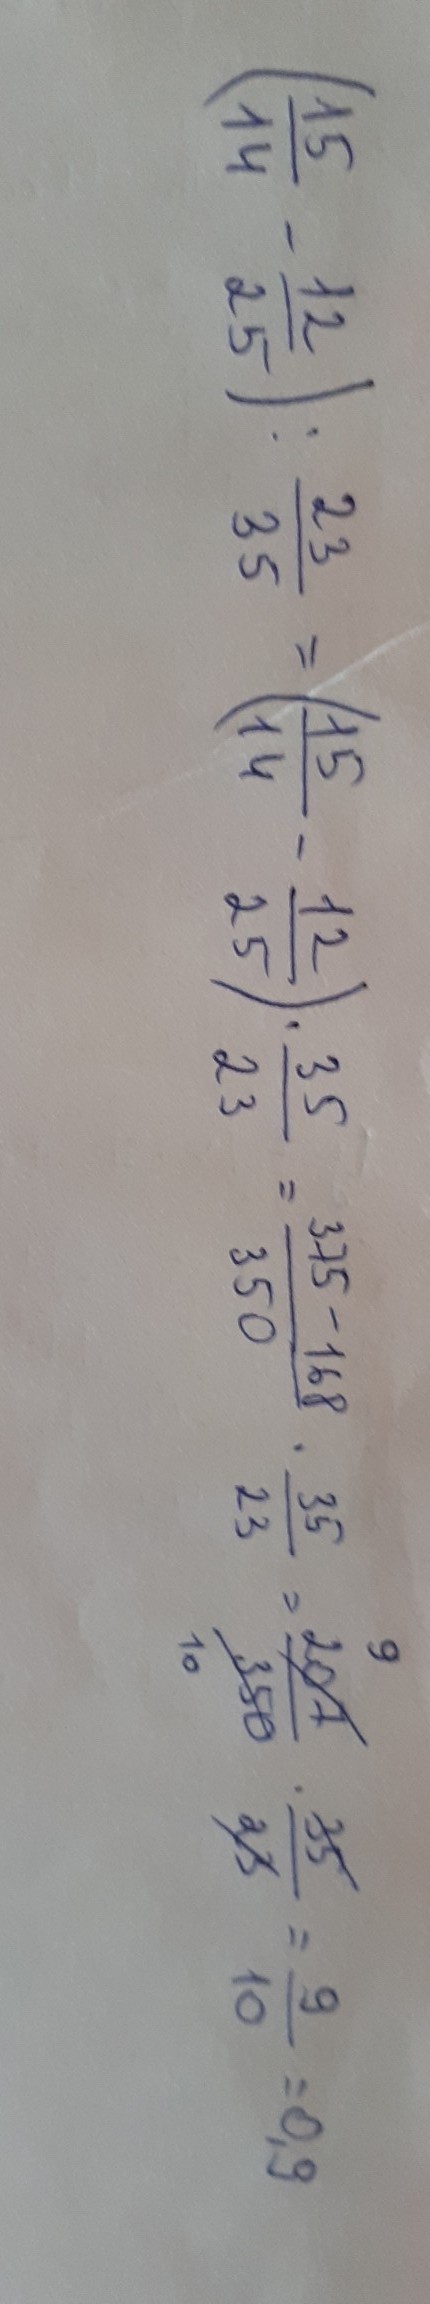 (15/14 - 12/25) : 23/35 = (15/14 - 12/25) · 35/23 = 375-168/350 · 35/23 = 207/350 · 35/23 = 9/10 = 0,9
9
10